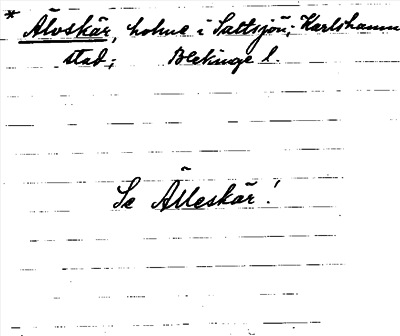 * Älvskär, holme i Saltsjön; Karlshamn
stad; Blekinge l.
Se Älleskär!